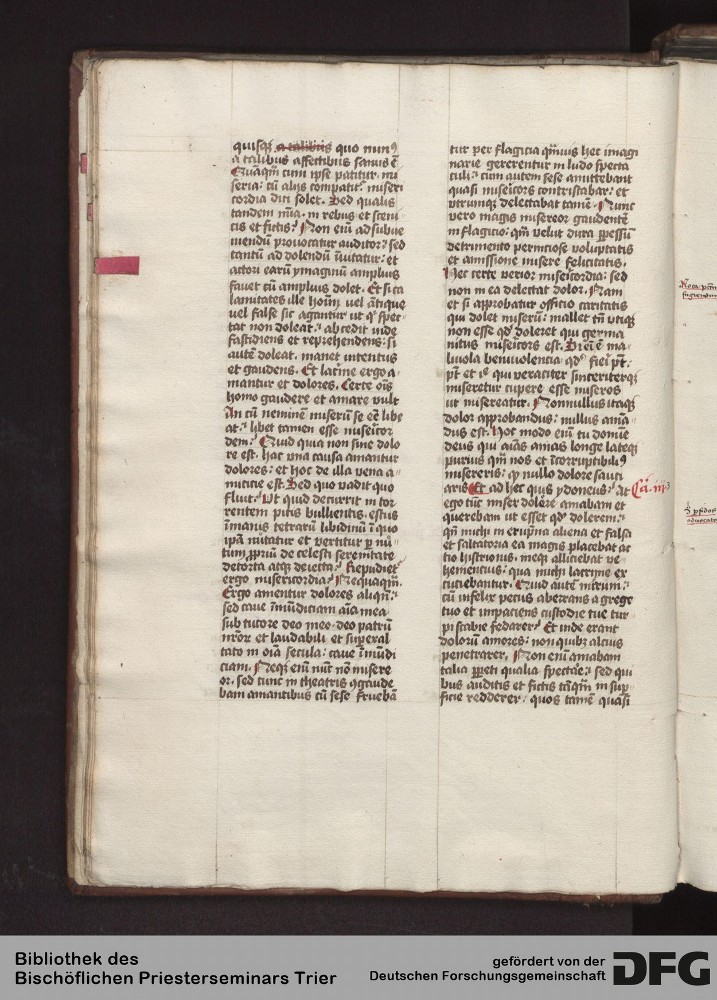 quisq̄ a talibus quo minꝰ
a talibus affectibus sanus ē
Quāqm̄ cum ipse patitur mi
seria: cū alijs compatit᷑ miseri
cordia dici solet. Sed qualis
tandem mīa in rebus fictis et sceni
cis et fictis? Non eīm ad subue
niendū prouocatur auditor: sed
tantū ad dolendū īuitatur: et
actori earū ymaginū amplius
fauet cū amplius dolet. Et si ca
lamitates ille hoīm vel ātique
vel false sic agantur ut qͥ spec
tat non doleat: abcedit inde
fastidiens et reprehendens: si
autē doleat. manet intentus
et gaudens. Et lacrīme ergo a
mantur et dolores. Certe oīs
homo gaudere et amare vult
An cū neminē miserū se eē libe
at: libet tamen esse misericor
dem: Quid quia non sine dolo
re est. hac vna causa amantur
dolores: et hoc de illa vena a
micicie est. Sed quo vadit quo
fluit? Vt quid decurrit in tor
rentem picis bullientis. estus
īmanis tetrarū libidinū ī quo
ipā mutatur et vertitur ꝑ nu
tum ꝓpriū de celesti serenitate
detorta atqꝫ deiecta? Repudiet᷑
ergo misericordia? Nequaqm̄.
Ergo amentur dolores aliqn̄:
sed caue īmūdiciam aīa mea
sub tutore deo meo. deo patrū
nr̄or̄ et laudabili et superexal
tato in oīa secula: caue īmūdi
ciam. Neqꝫ enī nūc nō misere
or. sed tunc in theatris ꝯgaude
bam amantibus cū sese fruebā
tur per flagicia qm̄uis hec imagi
narie gererentur in ludo specta
culi: cum autem sese amittebant
quasi miser̄icors contristabar: et
vtrumqꝫ delectabat tamē. Nunc
vero magis misereor gaudentē
in flagicio: qm̄ velut dura ꝑpessū
detrimento perniciose voluptatis
et amissione misere felicitatis.
Hec certe verior misericordia: sed
non in ea delectat dolor. Nam
et si approbatur officio caritatis
qui dolet miserū: mallet tn̄ vtiqꝫ
non esse qd̓ doleret qui germa
nitus misericors est. Si eīm ē ma
liuola beniuolentia qd̓ fieri pt̄.
pt̄ et is qui veraciter sinceriterqꝫ
miseretur cupere esse miseros
ut misereatur. Nonnullus itaqꝫ
dolor approbandus: nullus amā
dus est. Hoc modo enī tu domine
deus qui aīas amas longe lateqꝫ
purius qm̄ nos et īcorruptibiliꝰ
misereris: qꝫ nullo dolore sauci
aris Et ad hec quis ydoneus? At
ego tūc miser dolere amabam et
querebam ut esset qd̓ dolerem:
qn̄ michi in erūpna aliena et falsa
et saltatoria ea magis placebat ac
tio histrionis. meqꝫ alliciebat ve
hementius: qua michi lacrime ex
cuciebantur. Quid autē mirum:
cū infelix pecus aberrans a grege
tuo et impaciens custodie tue tur
pi scabie fedarer? Et inde erant
dolorū amores: non quibꝫ alcius
penetrarer. Non enī amabam
talia ꝑpeti qualia spectare: sed qui
bus auditis et fictis tāqm̄ in supꝑ
ficie redderer: quos tamē quasi
Ca. iii
Bibliothek des
Bischöflichen Priesterseminars Trier
gefördert von der
Deutschen Forschungsgemeinschaft
DFG